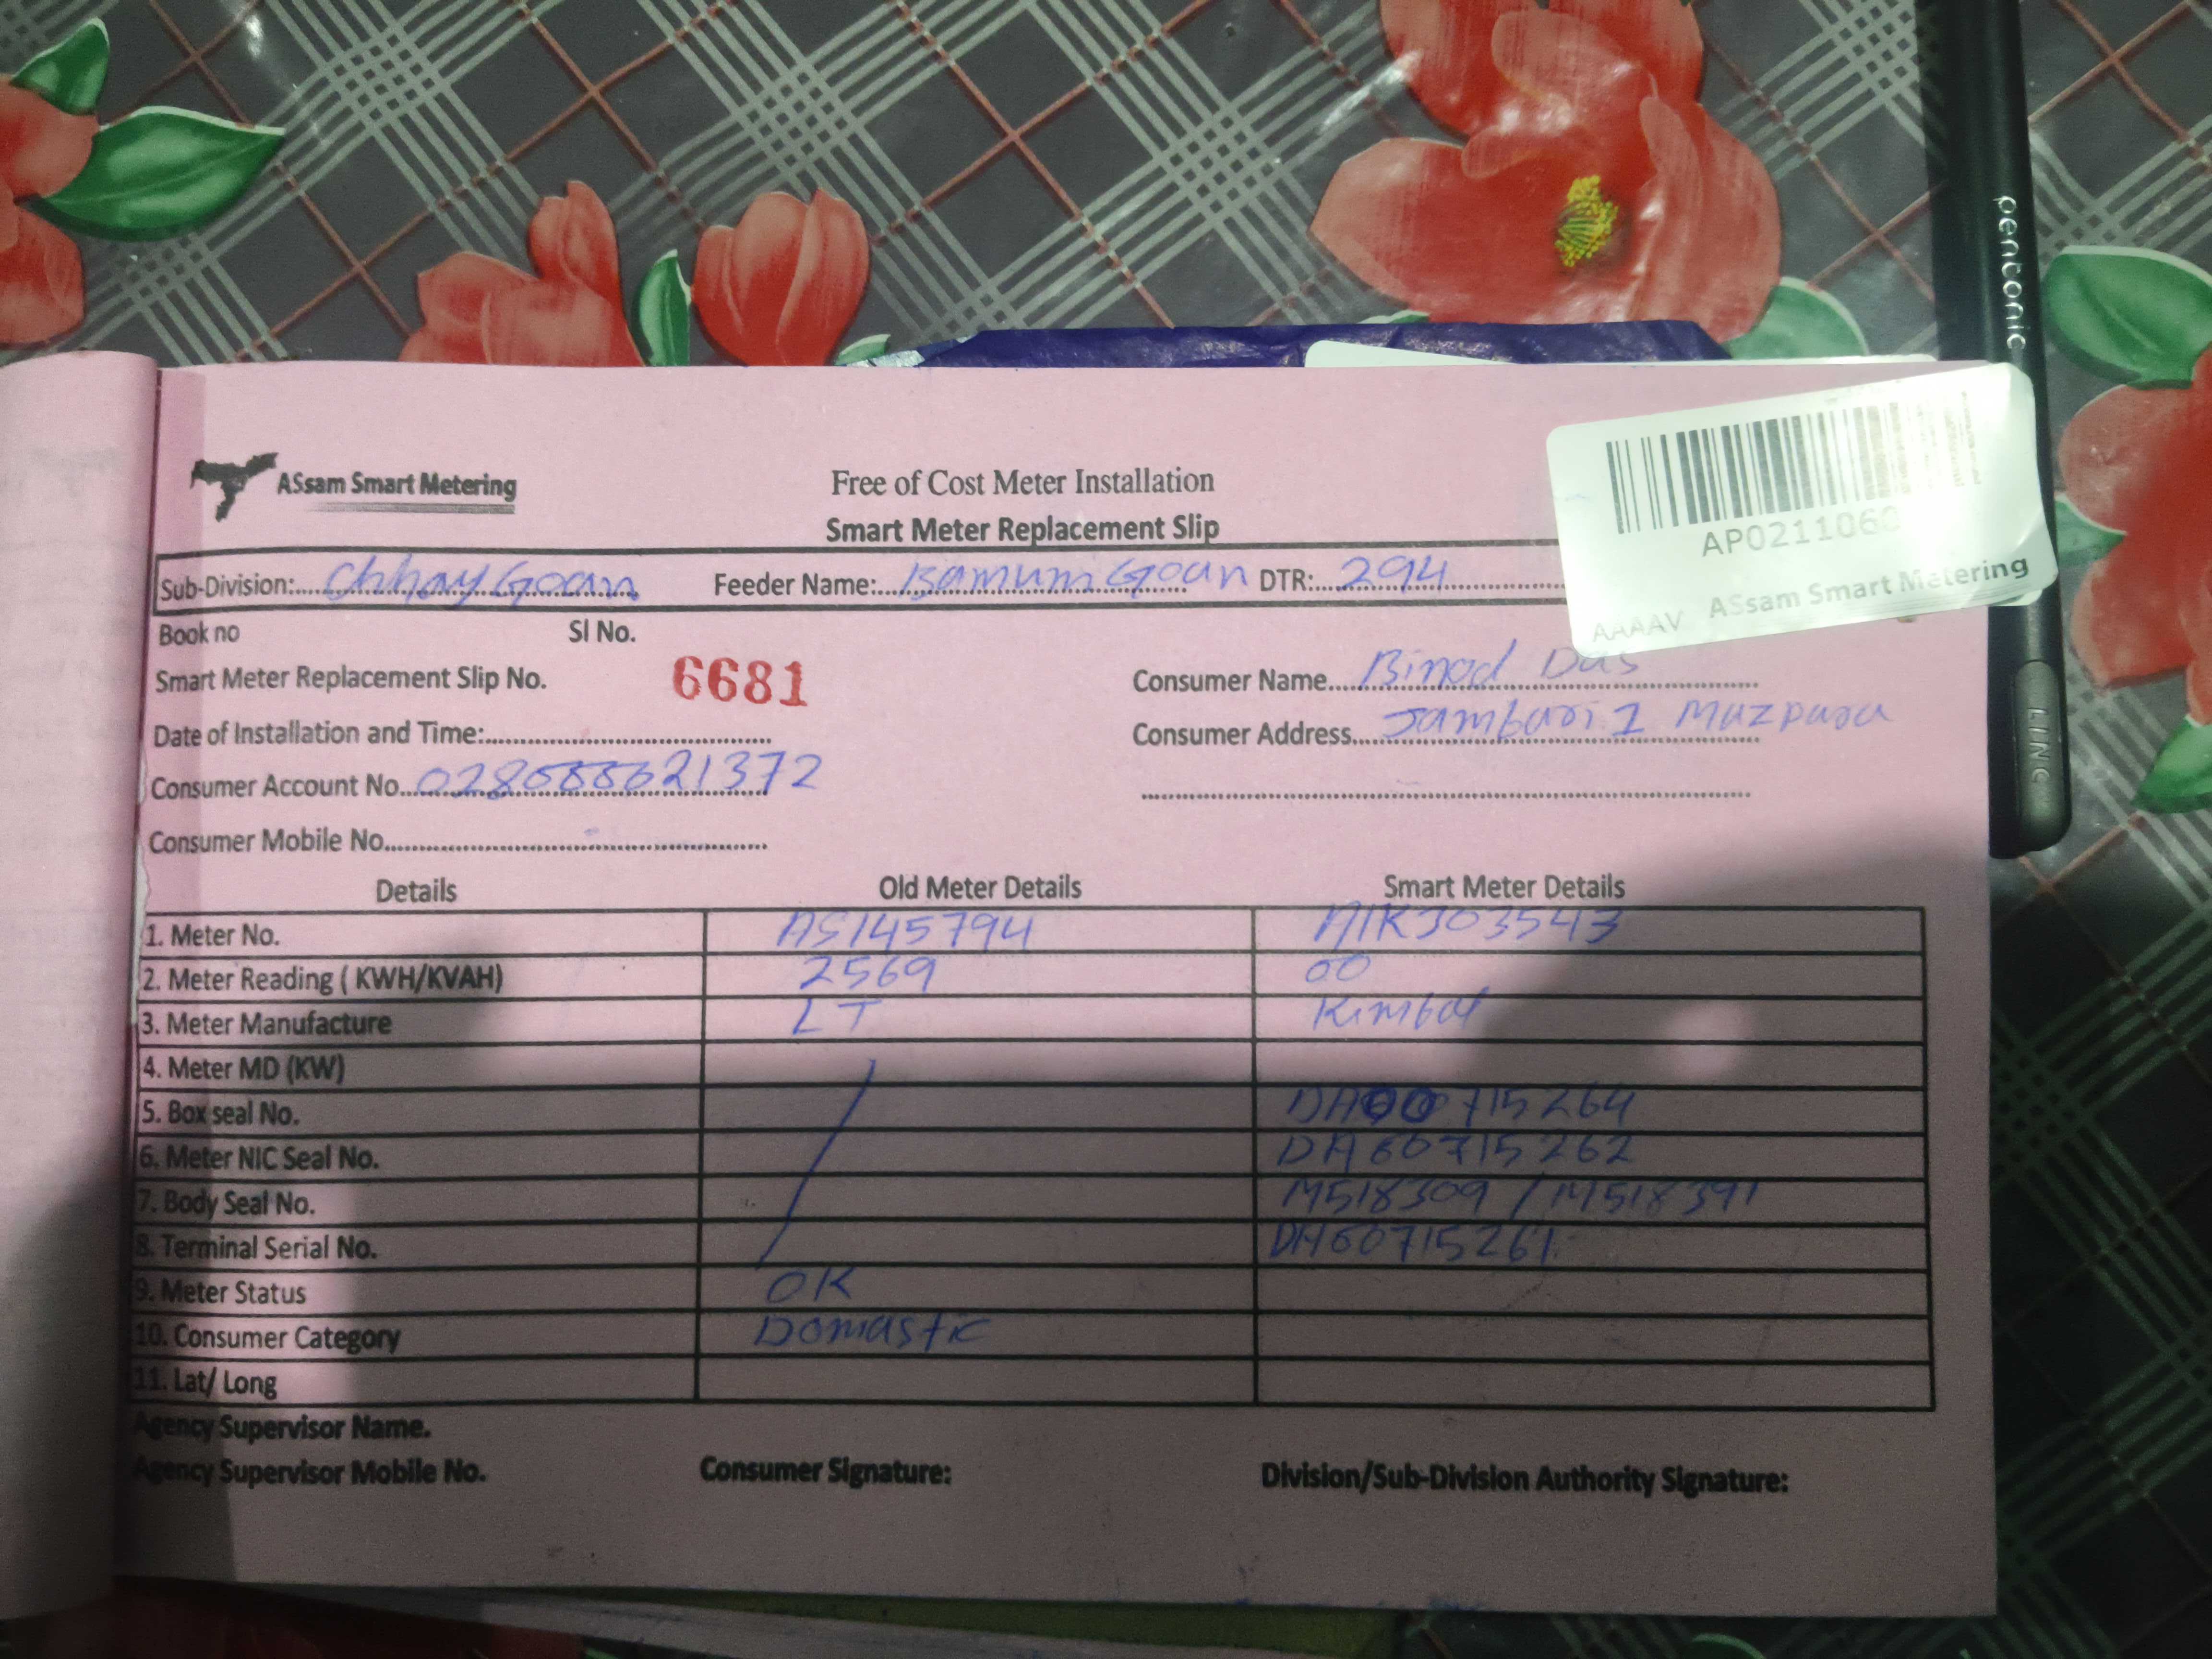 ASsam Smart Metering
Free of Cost Meter Installation
Smart Meter Replacement Slip
AP0211060
AAAAV ASsam Smart Metering
Sub-Division: ChhayGoan Feeder Name: BamumGoan DTR: 294
Book no Sl No.
Smart Meter Replacement Slip No. 6681 Consumer Name Binod Das
Date of Installation and Time: Consumer Address Jambari 1 Mazpara
Consumer Account No. 028000021372
Consumer Mobile No.
Details Old Meter Details Smart Meter Details
1. Meter No. AS145794 303543
2. Meter Reading ( KWH/KVAH) 2569 00
3. Meter Manufacture LT Kimbal
4. Meter MD (KW)
5. Box seal No. DA00715264
6. Meter NIC Seal No. DA00715262
7. Body Seal No. M518309 / M518391
8. Terminal Serial No. DA00715261
9. Meter Status OK
10. Consumer Category Domastic
11. Lat/ Long
Agency Supervisor Name.
Agency Supervisor Mobile No. Consumer Signature: Division/Sub-Division Authority Signature:
pentonic
LINC